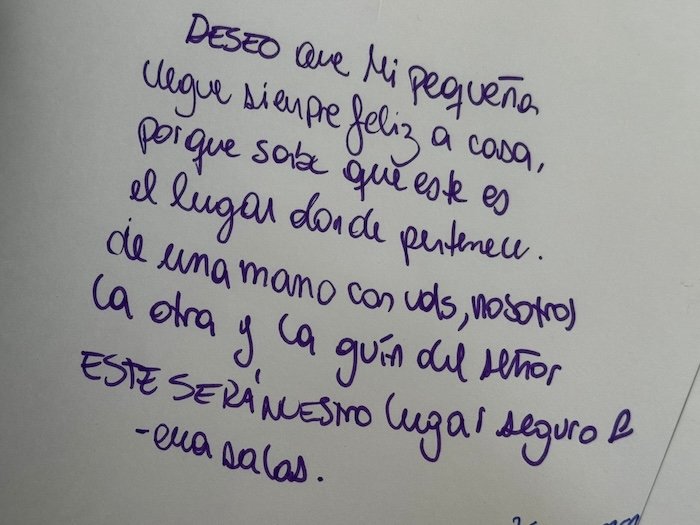 DESEO que Mi pequeña
llegue siempre feliz a casa,
porque sabe que este es
el lugar donde pertenece.
de una mano con uds, nosotros
la otra y la guía del señor
ESTE SERÁ NUESTRO lugar seguro
salas.